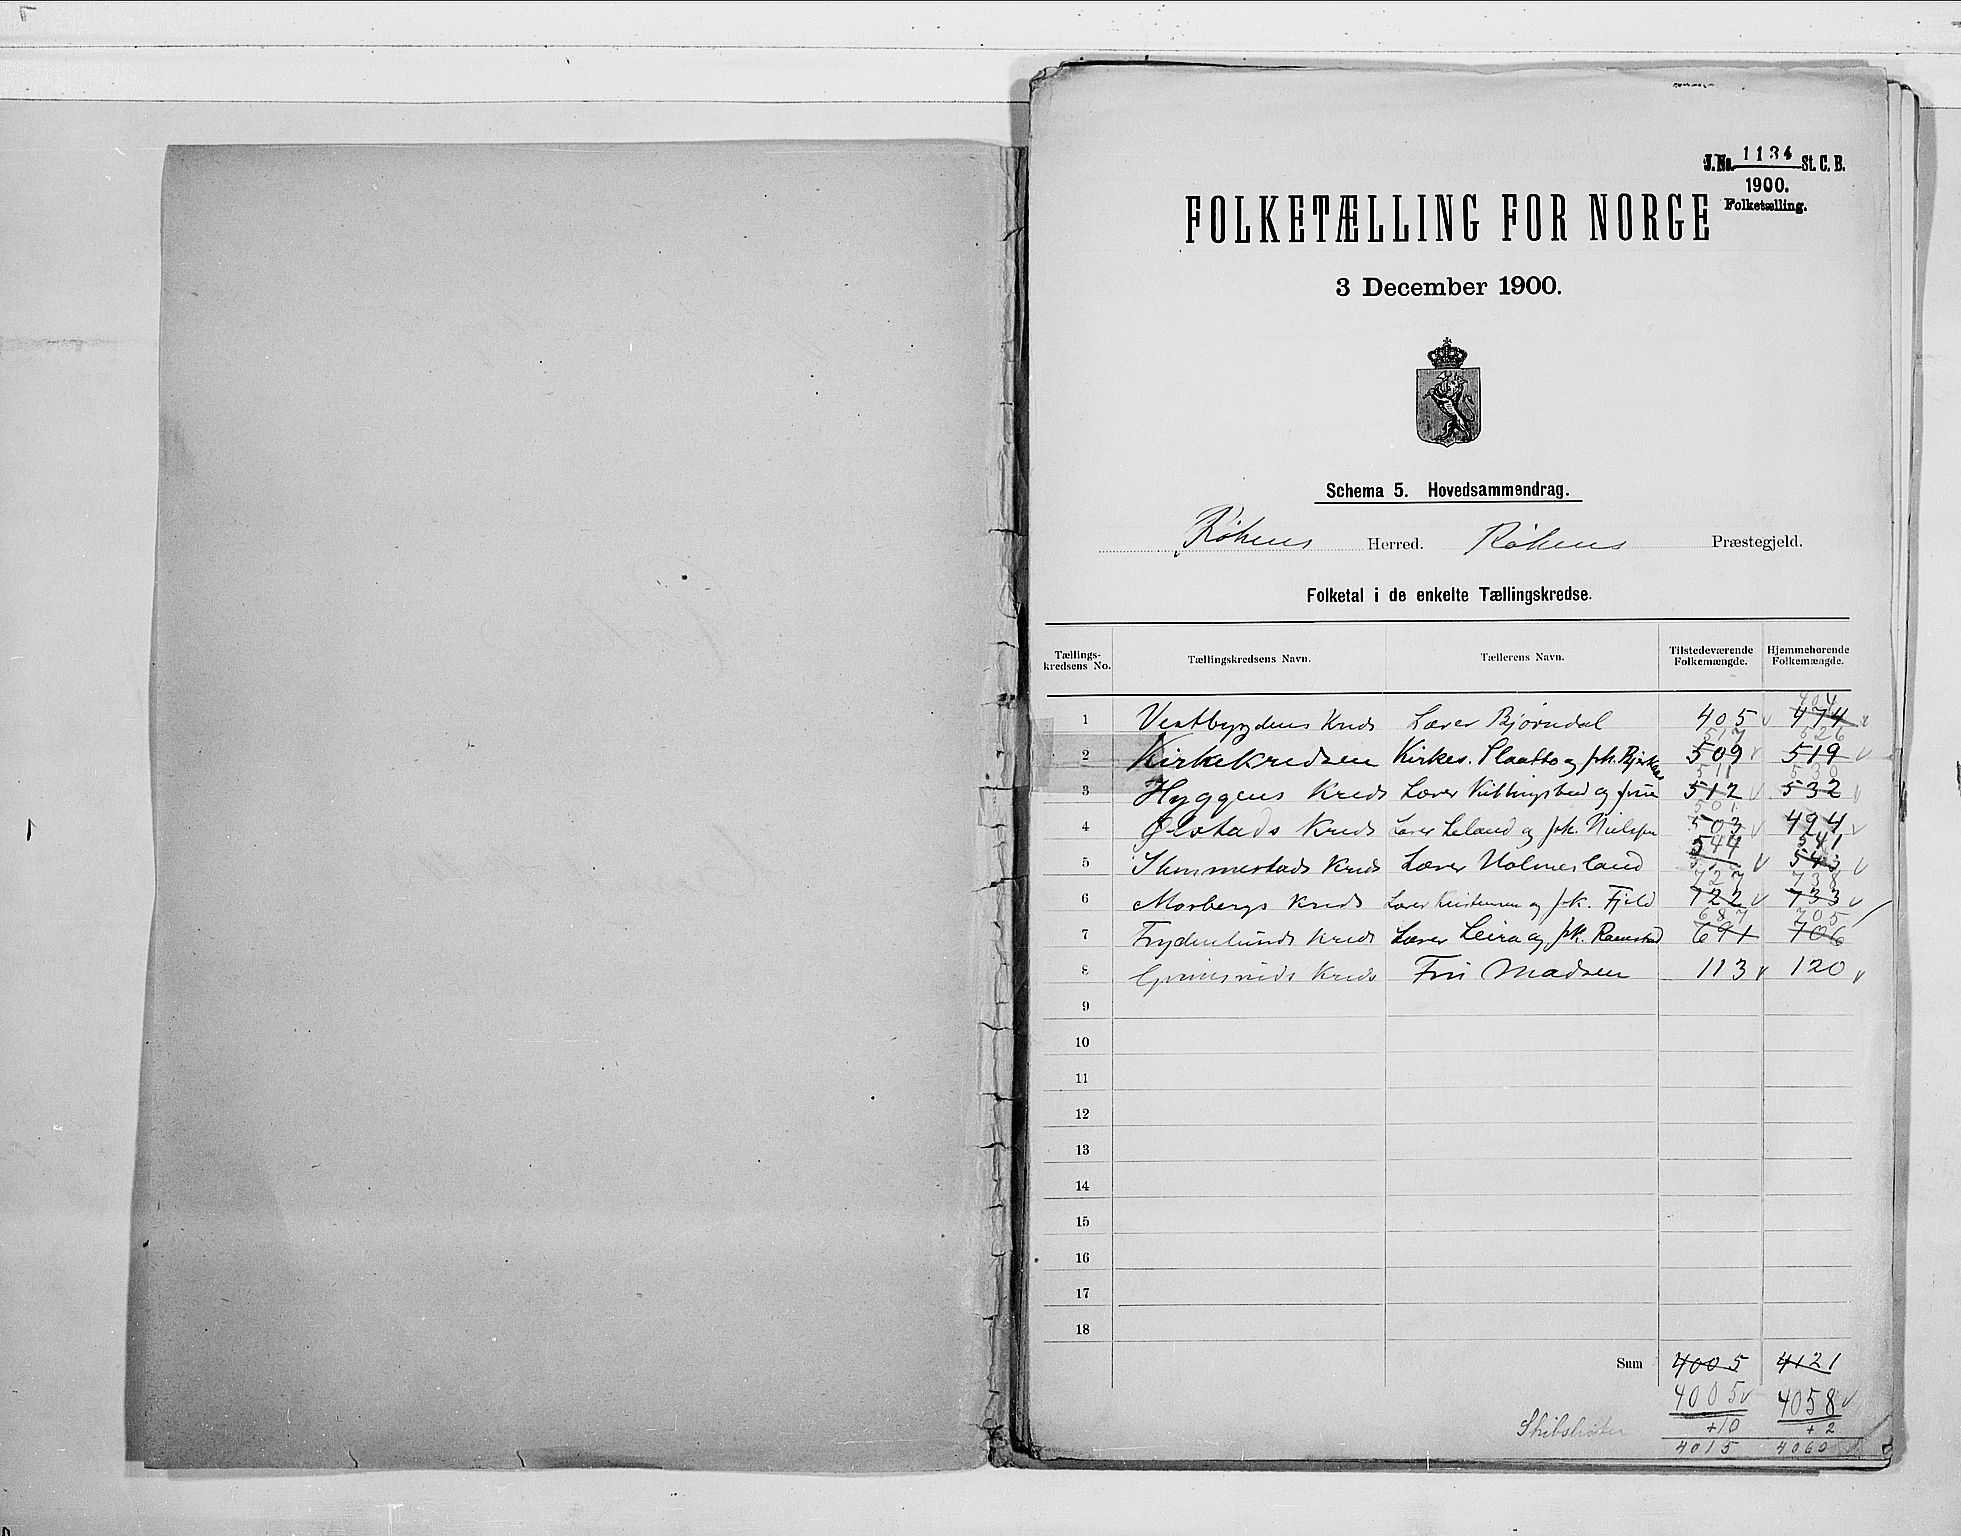 J. No. 1134 St. C. B.
1900.
Folketælling.
FOLKETÆLLING FOR NORGE
3 December 1900.
Schema 5. Hovedsammendrag.
Røkens Herred. Røkens Præstegjeld.
Folketal i de enkelte Tællingskredse.
Tællings-kredsens No. Tællingskredsens Navn. Tællerens Navn. Tilstedeværende Folkemængde. Hjemmehørende Folkemængde.
404
1 Vestbygdens Kreds Lærer Bjørndal 405 474
517 526
2 Kirkekredsen Kirkes. Plaatto og 509 519
511 530
3 Hyggens Kreds Lærer og 512 532
501
4 Ølstads Kreds Lærer Leland og Joh. Nielsen 503 494
544 541
5 Slemmestads Kreds Lærer Holmesland 543
727 738
6 Morbergs Kreds Lærer Kristensen og Joh. Fjeld 722 733
687 705
7 Frydenlunds Kreds Lærer Leira og Ramstad 691 706
8 Grimsruds Kreds Fru Madsen 113 120
9
10
11
12
13
14
15
16
17
18
Sum 4005 4121
4005 4058
Skibslister +10 +2
4015 4060